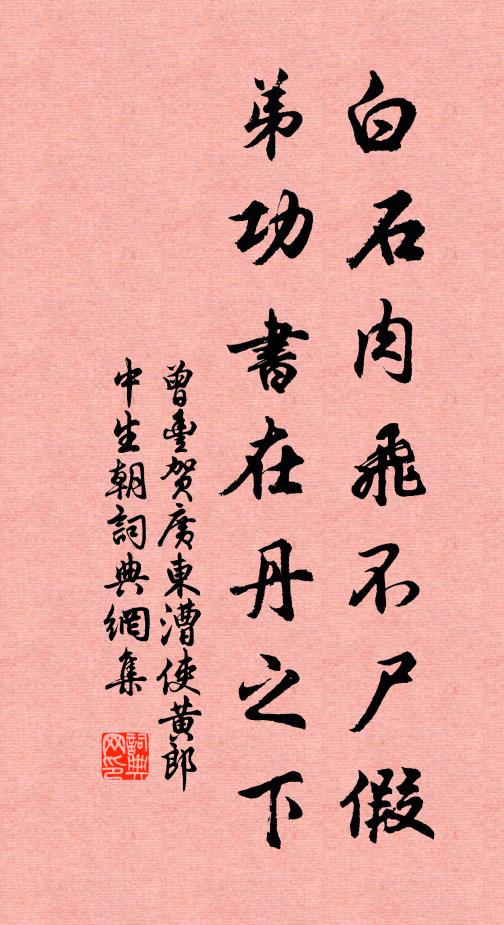 白石肉飛不尸假
弟功書在丹之下
曾豐賀廣東漕使黃郎
中生朝詞典網集
詞典網印